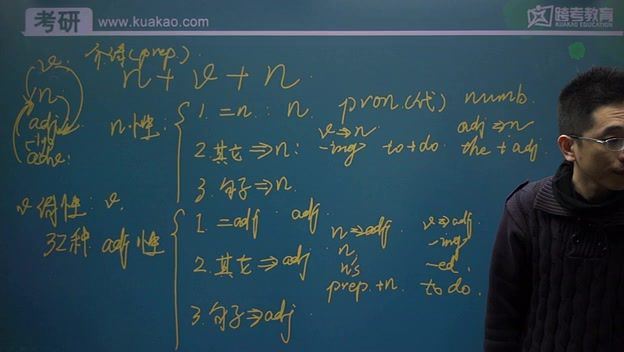 考研 www.kuakao.com
跨考教育
KUAKAO EDUCATION
v. 介词(prep)
n + v + n.
n
adj
adv.
n性:
1. = n : n. pron.(代) numb.
v⇒n adj⇒n
2. 其它⇒n: -ing to+do. the + adj.
3. 句子⇒n.
v 词性: v.
32种 adj性
1. = adj adj
n⇒adj v⇒adj
n, -ing
2. 其它⇒adj n's -ed.
prep.+n. to do.
3. 句子⇒adj.